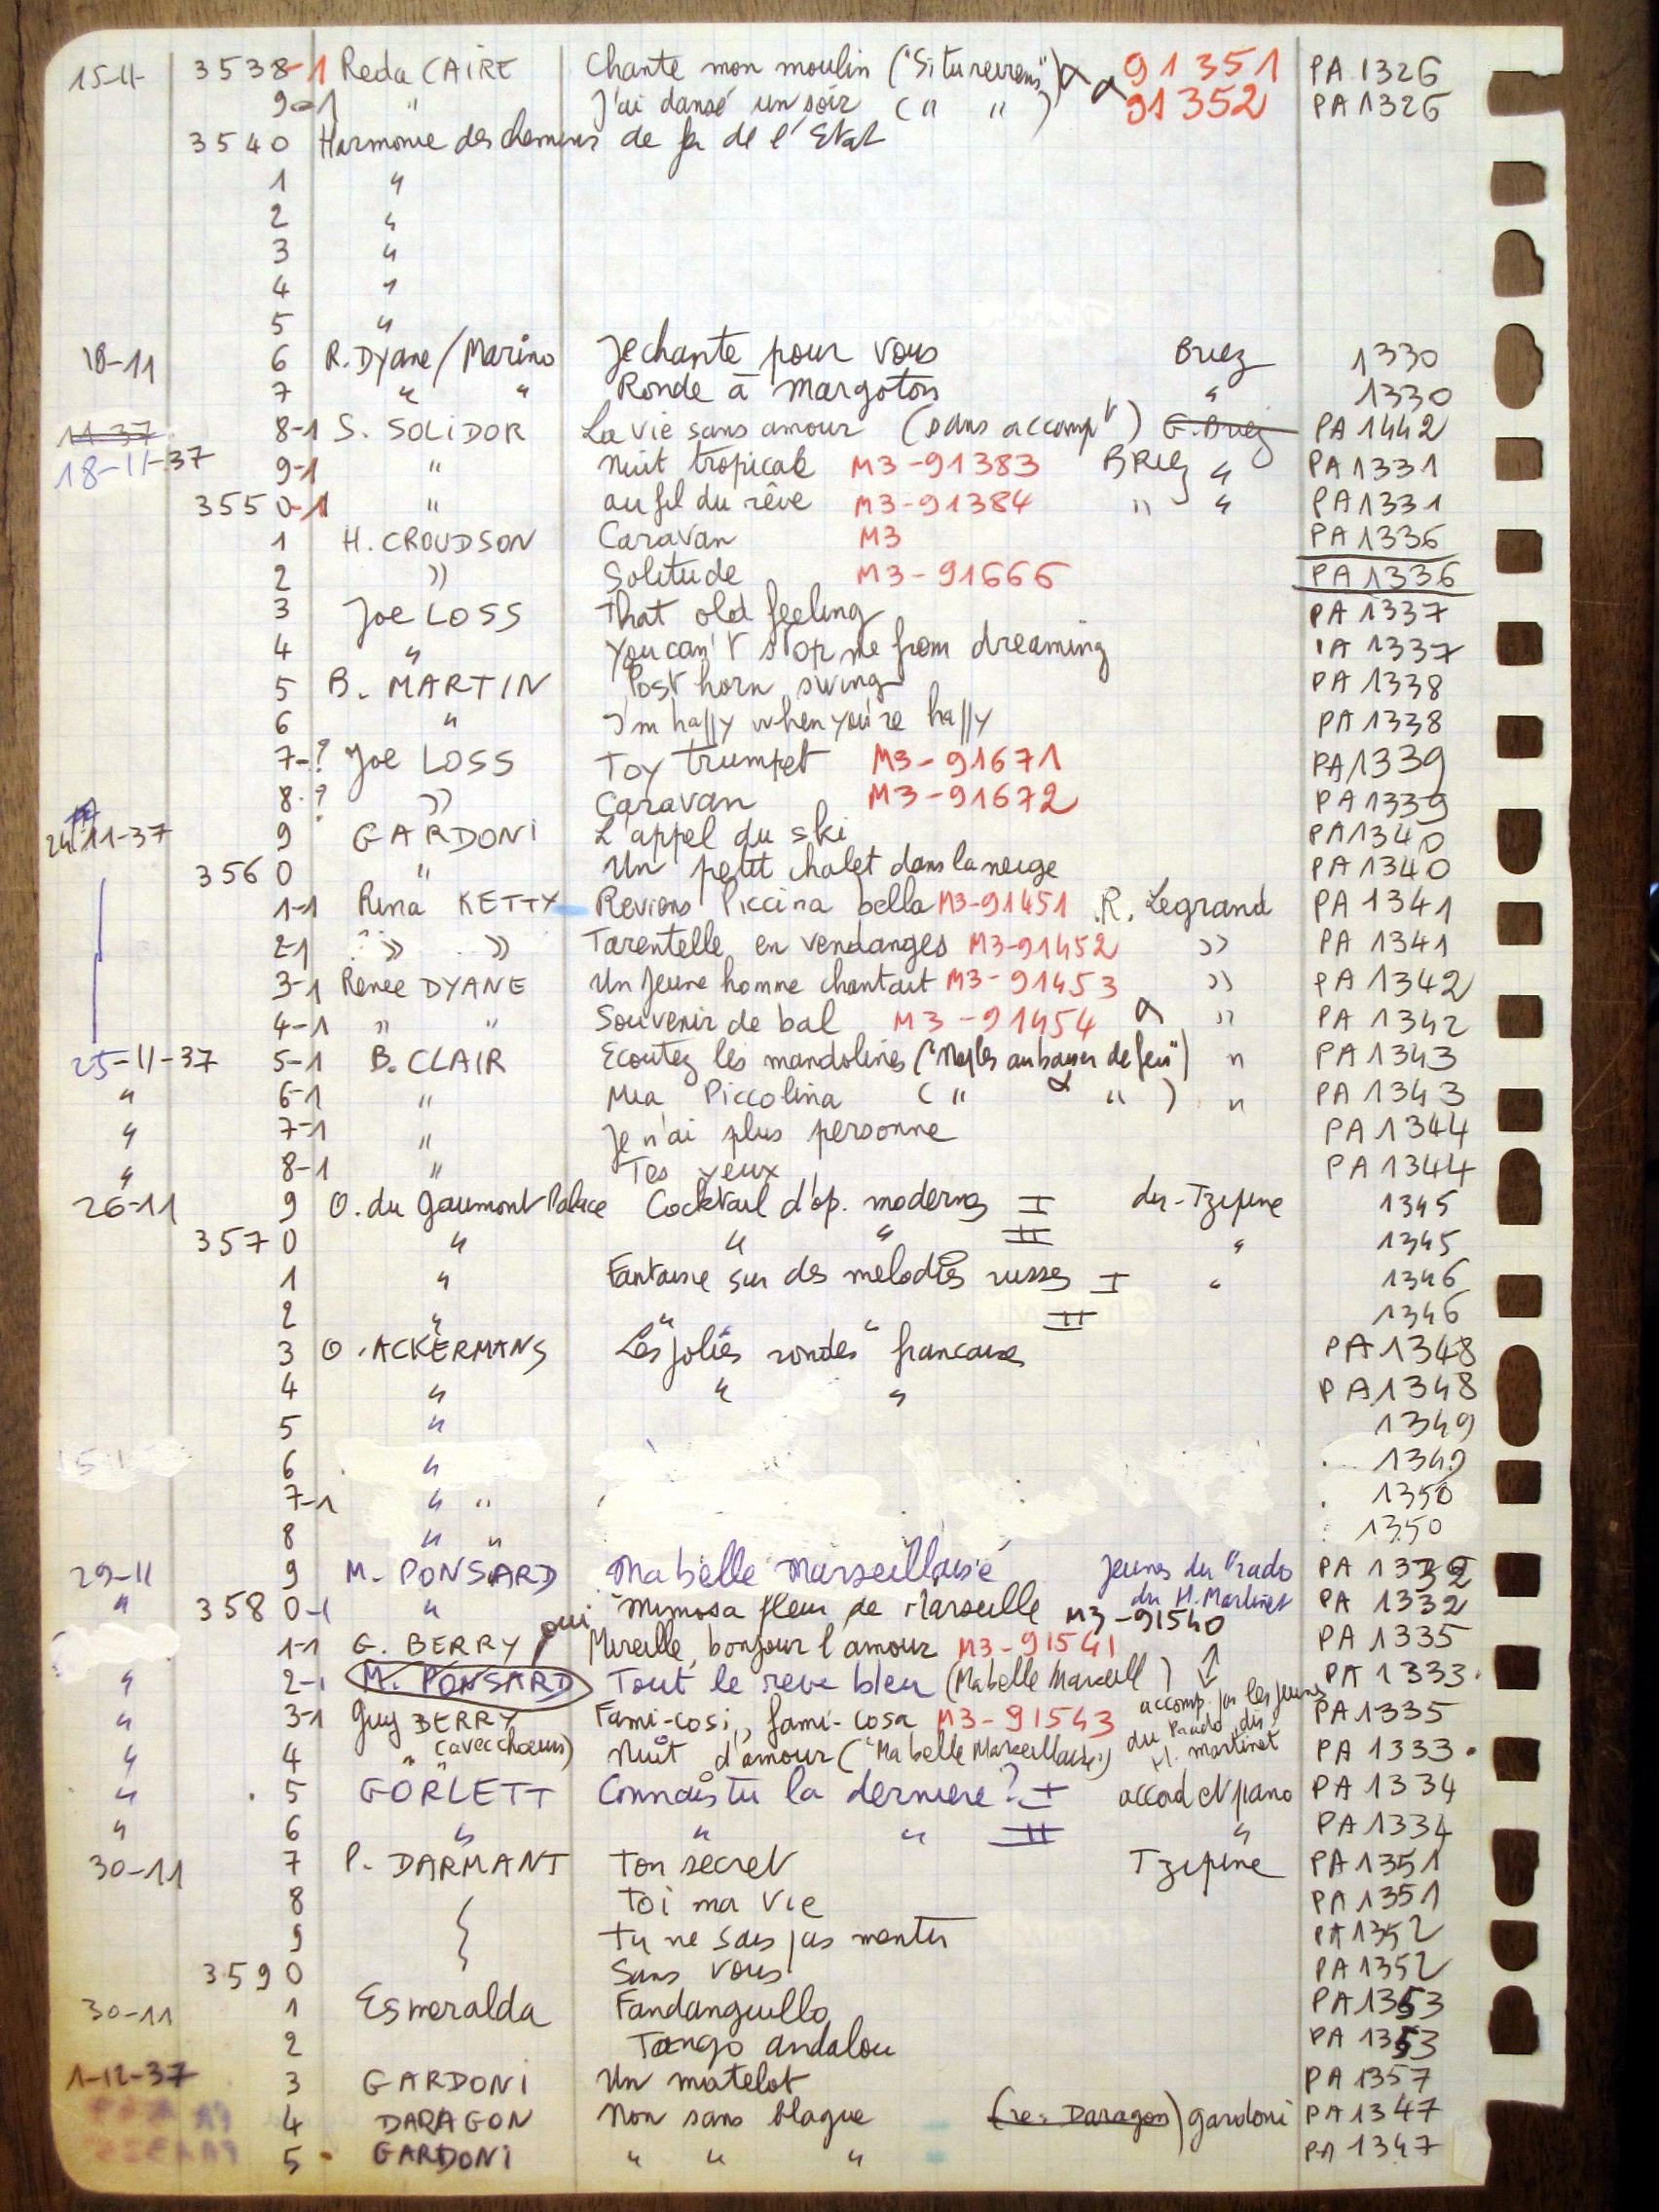 15-11 3538-1 Reda CAIRE Chante mon moulin ("Si tu reviens") 91351 PA 1326
9-1 " J'ai dansé un soir ( " " ) 91352 PA 1326
3540 Harmonie des chemins de fer de l'Etat
1 "
2 "
3 "
4 "
5 "
18-11 6 R. Dyane/Marino Je chante pour vous Briez 1330
7 " " Ronde à Margoton " 1330
11-37 8-1 S. SOLIDOR La vie sans amour (sans accompt) G. Briez PA 1442
18-11-37 9-1 " Nuit tropicale M3-91383 BRiez " PA 1331
3550-1 " au fil du rêve M3-91384 " " PA 1331
1 H. CROUDSON Caravan M3 PA 1336
2 " Solitude M3-91666 PA 1336
3 Joe LOSS That old feeling PA 1337
4 " You can't stop me from dreaming PA 1337
5 B. MARTIN Post horn swing PA 1338
6 " I'm happy when you're happy PA 1338
7-? Joe LOSS Toy trumpet M3-91671 PA 1339
8-? " Caravan M3-91672 PA 1339
24-11-37 9 GARDONI L'appel du ski PA 1340
3560 " Un petit chalet dans la neige PA 1340
1-1 Rina KETTY Reviens Piccina bella M3-91451 R. Legrand PA 1341
2-1 " " Tarentelle en vendanges M3-91452 " PA 1341
3-1 Renée DYANE Un jeune homme chantait M3-91453 " PA 1342
4-1 " " Souvenir de bal M3-91454 " PA 1342
25-11-37 5-1 B. CLAIR Ecoutez les mandolines ("Naples au baiser de feu") " PA 1343
" 6-1 " Mia Piccolina ( " " ) " PA 1343
" 7-1 " Je n'ai plus personne PA 1344
" 8-1 " Tes yeux PA 1344
26-11 9 O. du Gaumont Palace Cocktail d'op. modernes I dir-Tzipine 1345
3570 " " " II " 1345
1 " Fantaisie sur des melodies russes I " 1346
2 " " II 1346
3 O. ACKERMANS Les jolies rondes francaises PA 1348
4 " " " PA 1348
5 " 1349
6 " 1349
7-1 " " 1350
8 " " 1350
29-11 9 M. PONSARD Ma belle Marseillaise Jeunes du Prado PA 1332
" 3580-1 " Mimosa fleur de Marseille M3-91540 dir H. Martinet PA 1332
1-1 G. BERRY oui Mireille, bonjour l'amour M3-91541 PA 1335
" 2-1 M. PONSARD Tout le reve bleu (Ma belle Marseill ) PA 1333.
" 3-1 Guy BERRY Fami-cosi, fami-cosa M3-91543 accomp. par les jeunes PA 1335
" 4 " " (avec choeurs) Nuit d'amour ("Ma belle Marseillaise") du Prado dir. H. Martinet PA 1333.
" 5 GORLETT Connais tu la derniere ? I accord et piano PA 1334
" 6 " " " II " PA 1334
30-11 7 P. DARMANT Ton secret Tzipine PA 1351
8 Toi ma vie PA 1351
9 Tu ne sais pas mentir PA 1352
3590 Sans vous PA 1352
30-11 1 Esmeralda Fandanguillo PA 1353
2 Tango andalou PA 1353
1-12-37 3 GARDONI Un matelot PA 1357
4 DARAGON Non sans blague (re. Daragon) Gardoni PA 1347
5 GARDONI " " " PA 1347